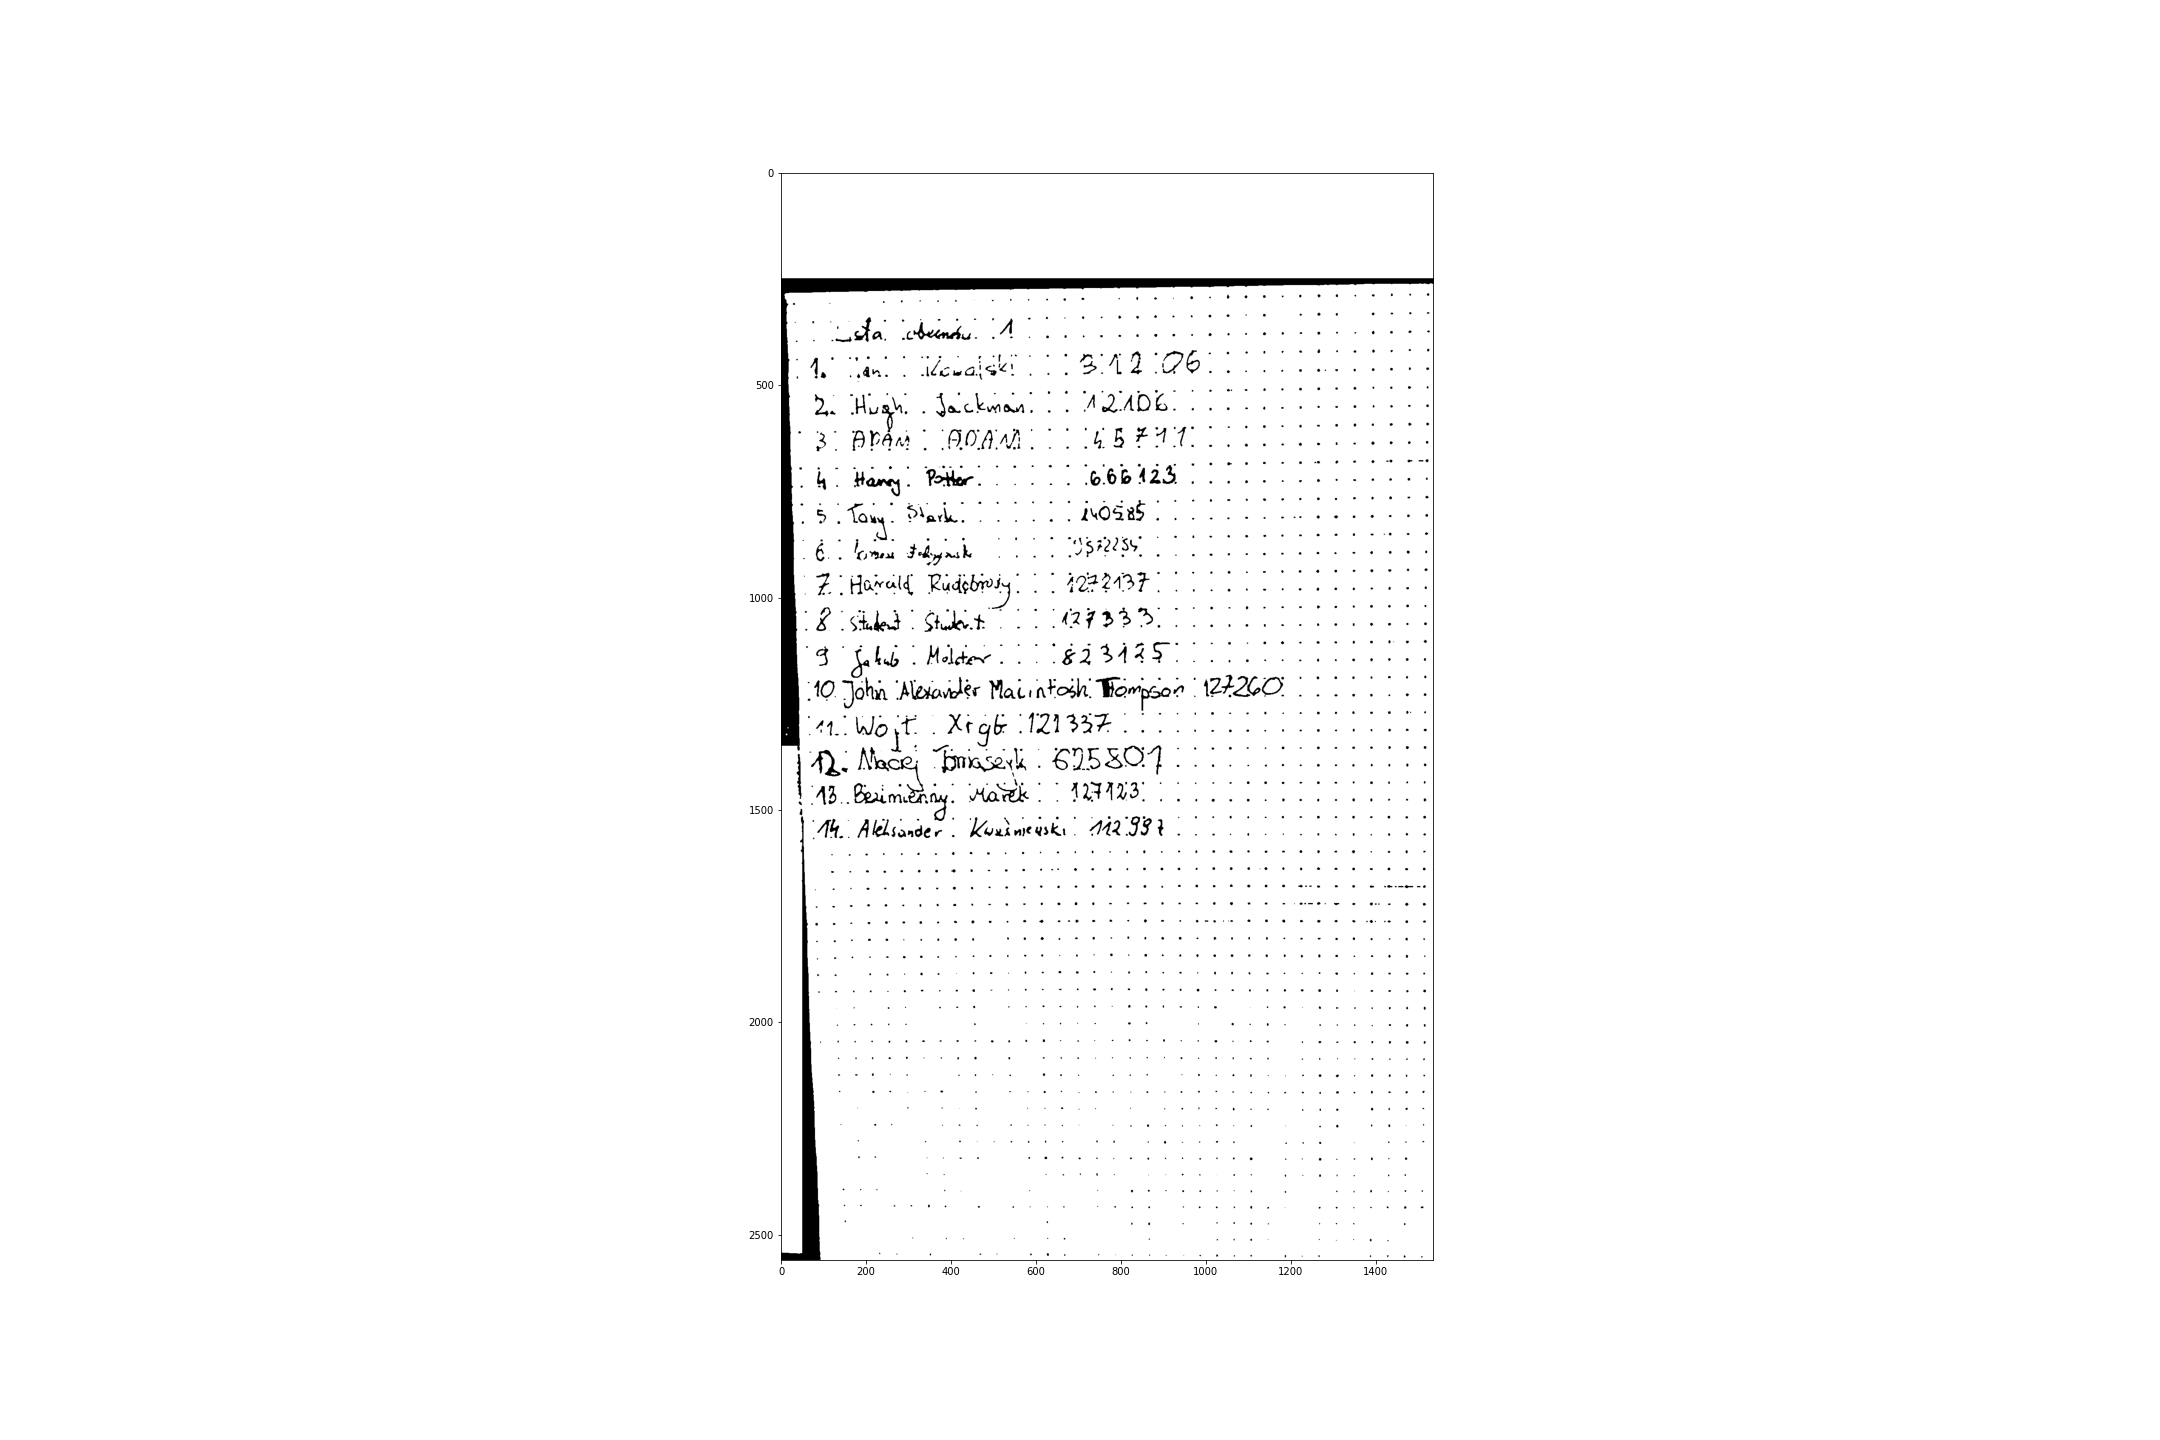 0
500
1000
1500
2000
2500
Lista obecności 1
1. Jan Kowalski 31206
2. Hugh Jackman 12106
3 ADAM ADAM 45711
4 Harry Potter 666123
5 Tony Stark 140585
6
7 Harald Rudobrody 1272137
8 Student Student 127333
9 Jakub Molster 823125
10 John Alexander Macintosh Thompson 127260
11. Wojt Xrgb 121337
12. Maciej Tomaszyk 625801
13. Bezimienny Marek 127123
14. Aleksander Kwaśniewski 112997
0 200 400 600 800 1000 1200 1400